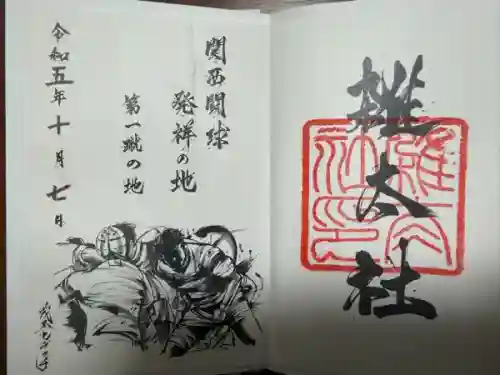 雜太社
関西闘球
発祥の地
第一蹴の地
令和五年十月七日